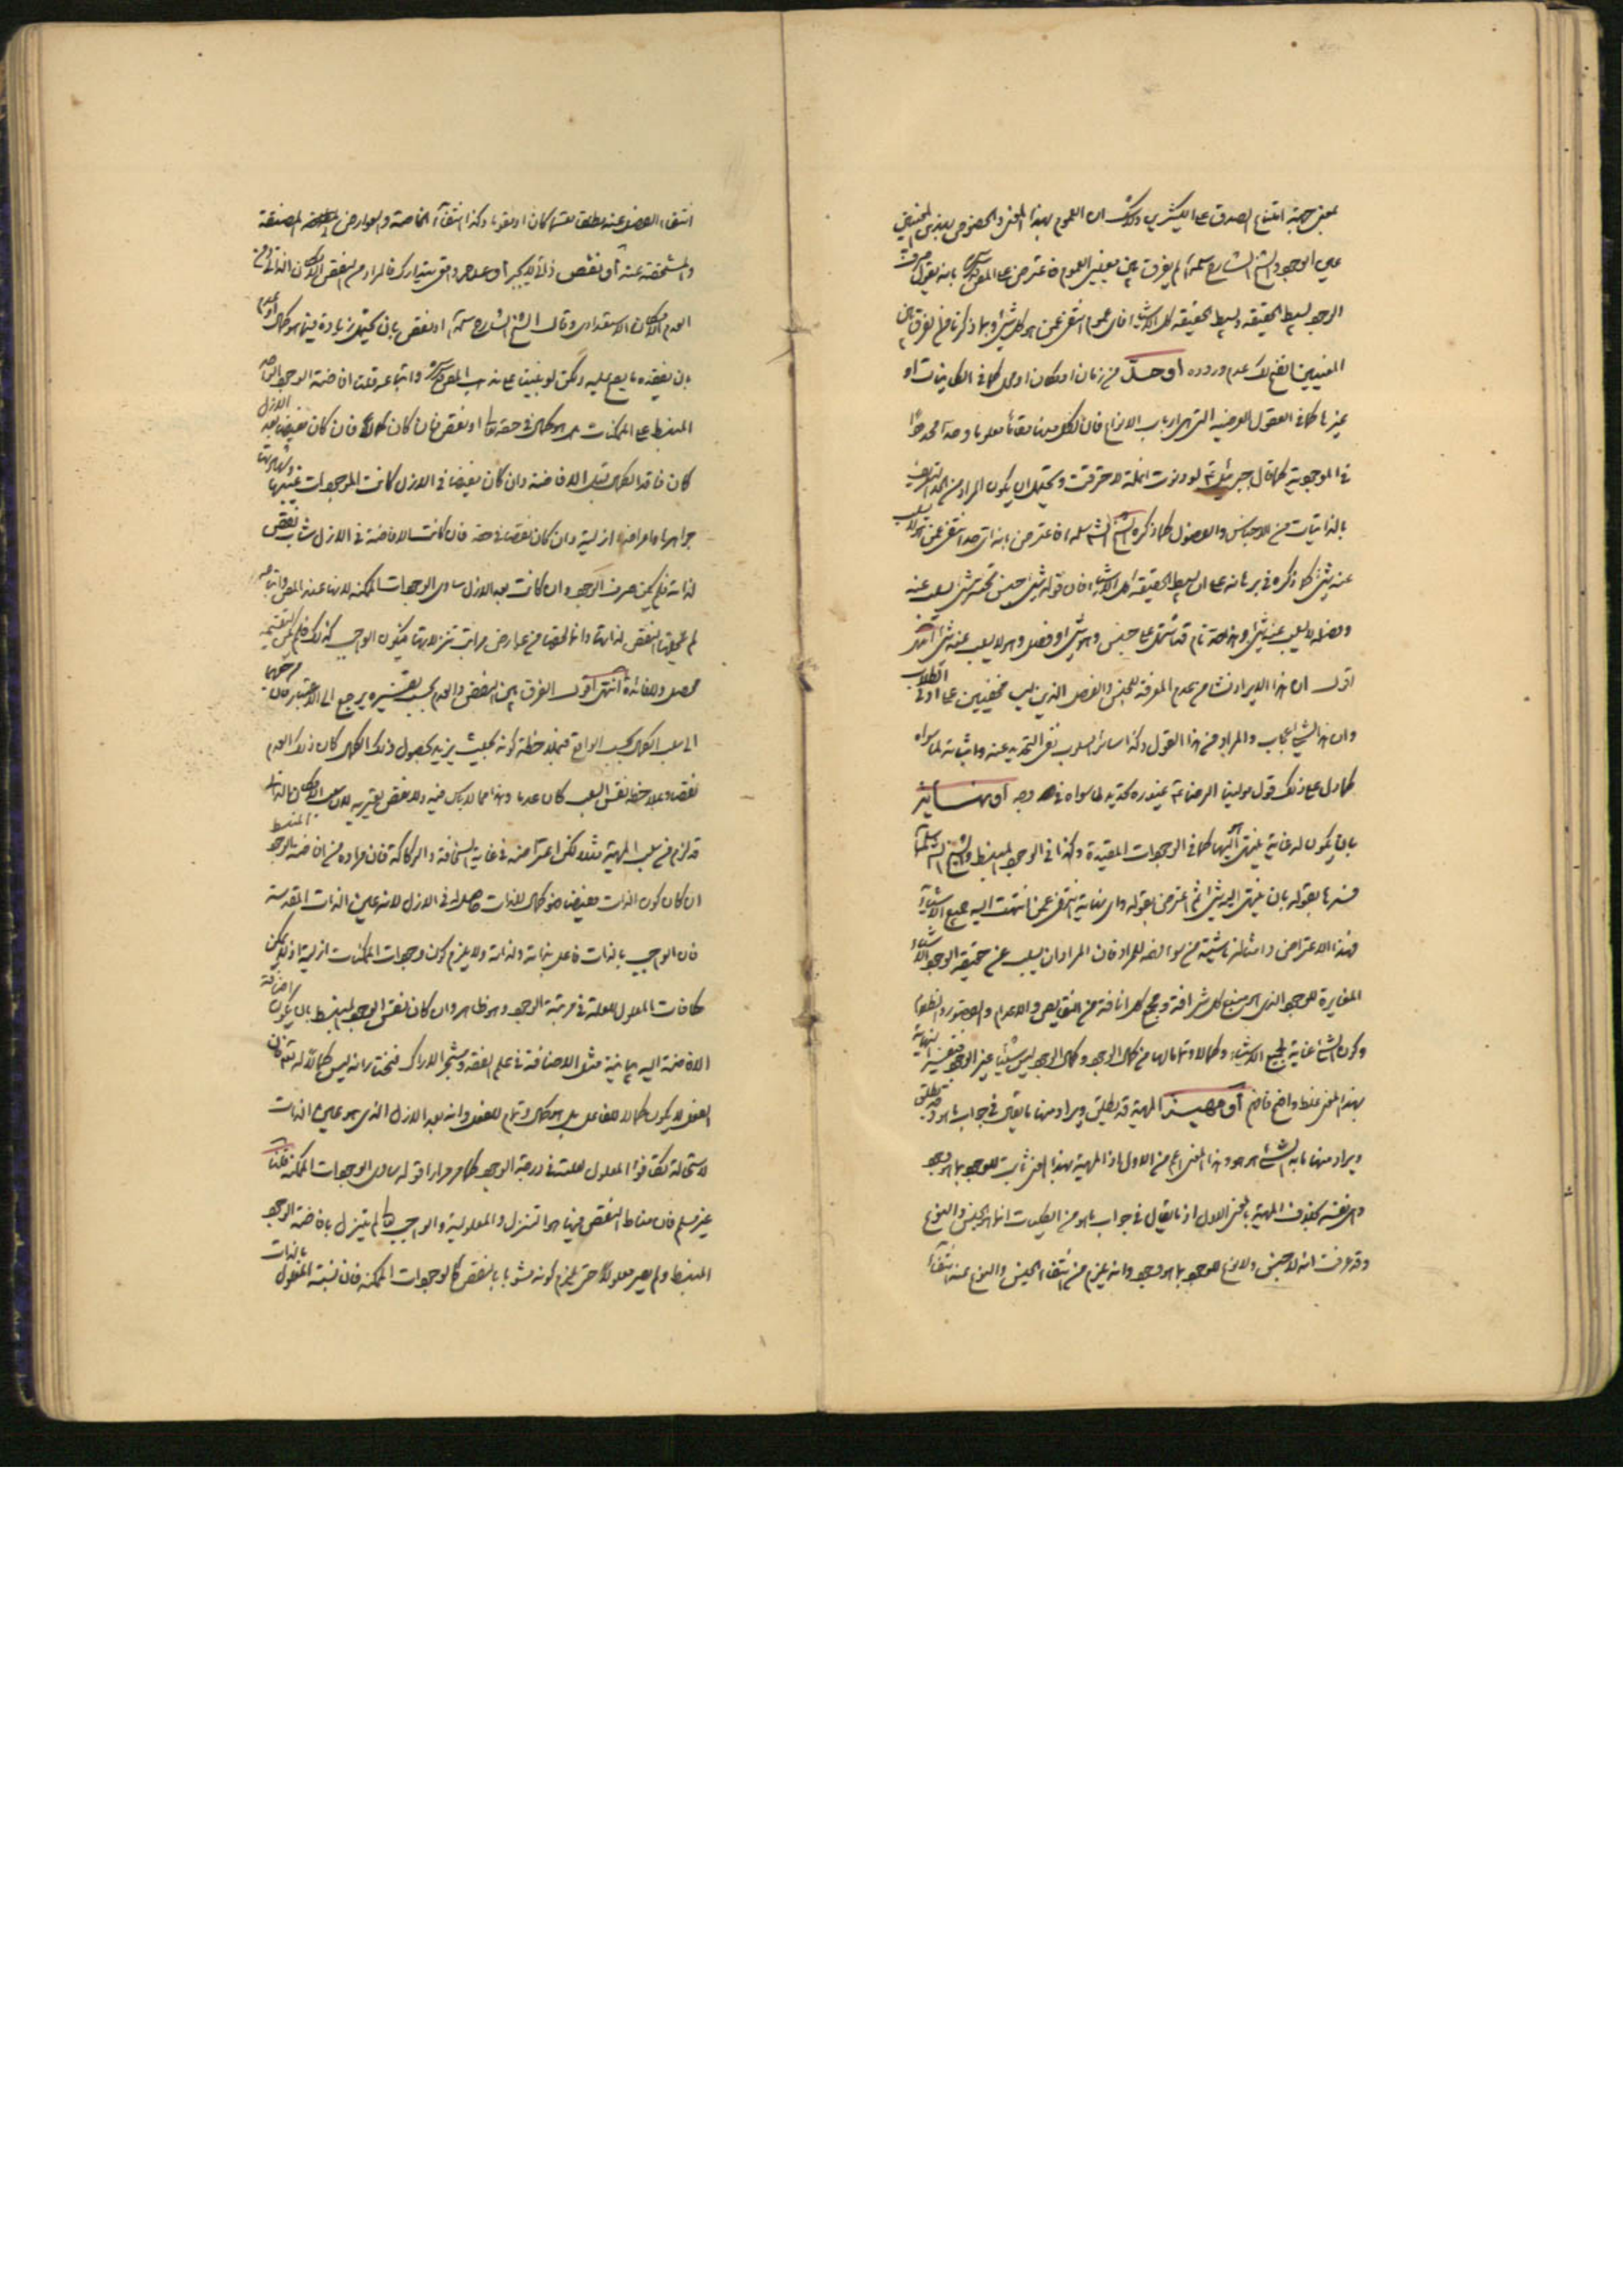 بمعنى جهة امتناع الصدق على الكثيرين ولا شك ان العموم بهذا المعنى والخصوص بهذين المعنيين
على الوجود والشيخ الشارح سلمه الله لم يفرق بين معنيى العموم فاعترض على المص بانه يقول صرف
الوجود بسيط الحقيقة وبسيط الحقيقة كل الاشياء فاى عموم انتفى عمن هو كل شئ وبما ذكرنا من الفرق بين
المعنيين اتضح لك عدم وروده او حد من زمان او مكان او محل كما فى الكاينات او
غيرها كما فى العقول العرضية التى هى ارباب الانواع فان لكل منها مقاما معلوما وحدا محدودا
فى الموجودية كما قال جبرئيل لو دنوت انملة لاحترقت ويحتمل ان يكون المراد من الحد التعريف
بالذاتيات من الاجناس والفصول كما ذكره الشيخ الش سلمه الله فاعترض بانه اى حد انتفى عمن لا يسلب
عنه شئ كما ذكره فى برهانه على ان بسيط الحقيقة كل الاشياء فان قوله شئ جنس تحته شئ يسلب عنه
وفصله لا يسلب عنه شئ وهذا حد تام قد اشتمل على جنس وهو شئ وفصل وهو لا يسلب عنه شئ انتهى
اقول ان هذا الايراد نشا من عدم المعرفة للجنس والفصل الذين ليسا بمخفيين على ادنى الطلاب
وان هذا لشئ عجاب والمراد من هذا القول وكذا سائر السلوب نفى التحديد عنه واثباته لما سواه
كما دل على ذلك قول مولينا الرضا غيوره تحديد لما سواه او نهاية
بان يكون له غاية ينتهى اليها كما فى الوجودات المقيدة وكذا فى الوجود المنبسط والشيخ الش سلمه الله
فسرها بقوله بان ينتهى الى شئ ثم اعترض بقوله واى نهاية انتفى عمن انتهت اليه جميع الاشياء
وهذا الاعتراض وامثاله ناشية من سوء الفهم للمراد فان المراد ان يسلب عن حقيقة الوجود الاشياء
المغايرة للوجود الذى هو منبع كل شرافة ومجمع كل انافة من النقايص والاعدام والقصور والظلمات
وكون الشئ غاية لجميع الاشياء وكمالا وتماما لها من كمال الوجود وكمال الوجود ليس شيئا غير الوجود فتفسير النهاية
بهذا المعنى غلط واضح فافهم او مهية المهية قد يطلق ويراد منها ما يقال فى جواب ما هو وقد يطلق
ويراد منها ما به الشئ هو هو وهذا المعنى اعم من الاول اذ المهية بهذا المعنى ثابت للوجود بما هو وجود
وهى نفسه بخلاف المهية بالمعنى الاول اذ ما يقال فى جواب ما هو من الكليات انما هو الجنس والنوع
وقد عرفت انه لا جنس ولا نوع للوجود بما هو وجود وانه يلزم من انتفاء الجنس والنوع عنه انتفاء
انتفاء الفصل عنه مطلقا مقسما كان او مقوما وكذا انتفاء الخاصة والعوارض المصنفة
والمشخصة عنه او نقص فالمراد من النقص الامكان الذاتى ومن
العدم الامكان الاستعدادى وقال الشيخ الشارح سلمه الله او نقص بان يحتمل زيادة فيما هو كمال او عدم
بان يفقد ما يصح عليه ولكن لو بنينا على مذهب المص واتباعه قلت افاضة الوجود
المنبسط على الممكنات هل هو كمال فى حقه تعالى او نقص فان كان كمالا فان كان يفيض بعد الازل
كان فاقدا لكمال قبل الافاضة وان كان يفيض فى الازل كانت الموجودات غيبها وشهادتها
جواهرها واعراضها ازلية وان كان نقصا فى حقه فان كانت الافاضة فى الازل شابه نقص
لذاته فلم يكن صرف الوجود وان كانت بعد الازل ساوى الوجودات الممكنة لانها عند المص واتباعه
لم يلحقها النقص لذاتها وانما لحقها من عوارض مراتب تنزلاتها فيكون الواجب كذلك فلم يكن للتقسيم
محصل ولا فائدة انتهى اقول الفرق بين النقص والعدم بحسب تفسيره يرجع الى الاعتبار فان مرجعهما
الى سلب الكمال بحسب الواقع فبملاحظة كونه بحيث يزيد بحصول ذلك الكمال كان ذلك العدم
نقصا وبملاحظة نفس السلب كان عدما وهذا مما لا باس فيه ولا نقص يعتريه لان سلب الامكان الذاتى
قد لزم من سلب المهية مثلا لكن اعتراضه فى غاية السخافة والركاكة فان مراده من افاضة الوجود المنبسط
ان كان كون الذات مفيضا فهو كمال للذات حاصل له فى الازل لانه عين الذات المقدسة
فان الواجب بالذات فاعل بذاته ولذاته ولا يلزم كون وجودات الممكنات ازلية اذ لا يمكن
مكافات المعلول للعلة فى مرتبة الوجود وهو ظاهر وان كان نفس الوجود المنبسط بان يكون اضافة
الافاضة اليه بيانية مثل الاضافة فى علم الفقه وشجر الاراك فنختار انه ليس كمالا له تعالى فان
الفعل لا يكون كمالا للفاعل بل هو كمال وتمام للفعل وانه بعد الازل الذى هو عين الذات
لاستحالة تكافؤ المعلول للعلة فى درجة الوجود كما مر مرارا قوله ساوى الوجودات الممكنة قلنا
غير مسلم فان مناط النقص فيها هو التنزل والمعلولية والواجب تعالى لم يتنزل بافاضة الوجود
المنبسط ولم يصر معلولا حتى يلزم كونه مشوبا بالنقص كالوجودات الممكنة فان نسبة المفعول بالذات